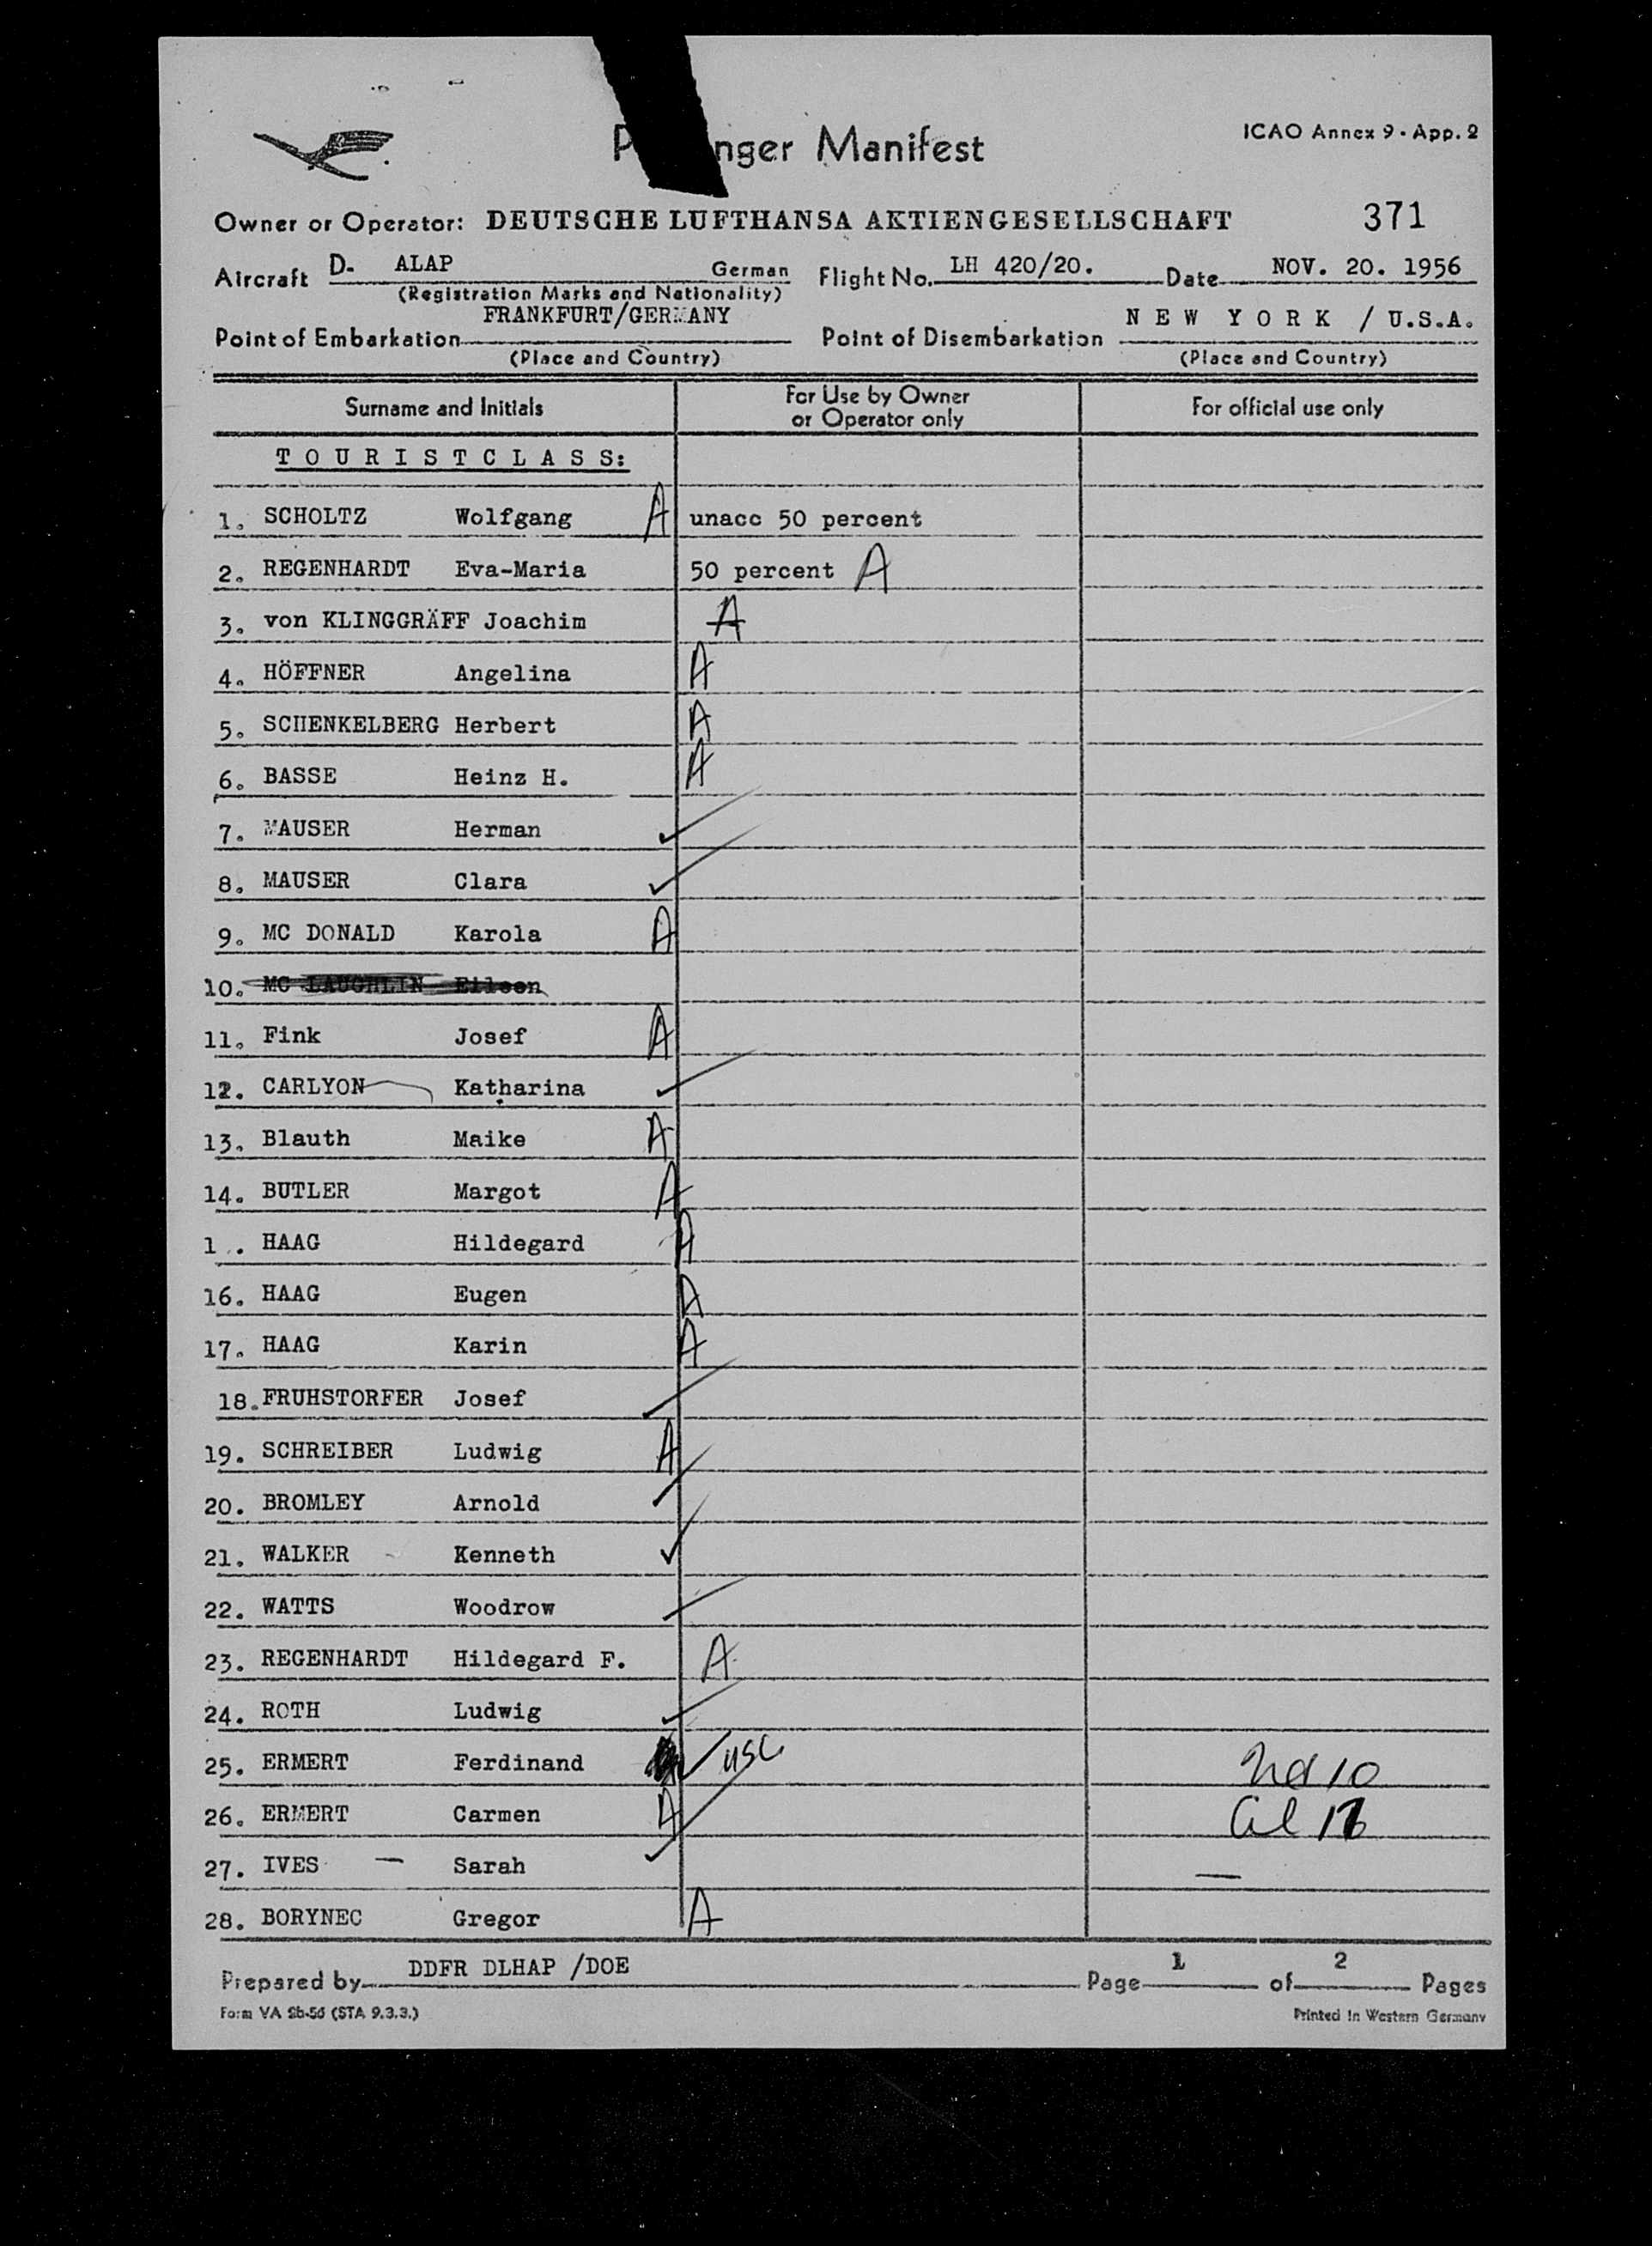 nger Manifest
ICAO Annex 9 - App. 2
Owner or Operator: DEUTSCHE LUFTHANSA AKTIENGESELLSCHAFT 371
Aircraft D- ALAP German Flight No. LH 420/20. Date NOV. 20. 1956
(Registration Marks and Nationality)
Point of Embarkation FRANKFURT/GERMANY Point of Disembarkation NEW YORK / U.S.A.
(Place and Country) (Place and Country)
Surname and Initials For Use by Owner or Operator only For official use only
TOURISTCLASS:
1. SCHOLTZ Wolfgang A unacc 50 percent
2. REGENHARDT Eva-Maria 50 percent A
3. von KLINGGRÄFF Joachim A
4. HÖFFNER Angelina A
5. SCHENKELBERG Herbert A
6. BASSE Heinz H. A
7. MAUSER Herman ✓
8. MAUSER Clara ✓
9. MC DONALD Karola A
10. MC LAUGHLIN Eileen
11. Fink Josef A
12. CARLYON Katharina ✓
13. Blauth Maike A
14. BUTLER Margot A
1 . HAAG Hildegard A
16. HAAG Eugen A
17. HAAG Karin A
18. FRUHSTORFER Josef ✓
19. SCHREIBER Ludwig A
20. BROMLEY Arnold ✓
21. WALKER Kenneth ✓
22. WATTS Woodrow ✓
23. REGENHARDT Hildegard F. A
24. ROTH Ludwig ✓
25. ERMERT Ferdinand ✓ USC 10
26. ERMERT Carmen A
27. IVES — Sarah ✓ —
28. BORYNEC Gregor A
Prepared by DDFR DLHAP /DOE Page 1 of 2 Pages
Form VA 2b-56 (STA 9.3.3.) Printed in Western Germany